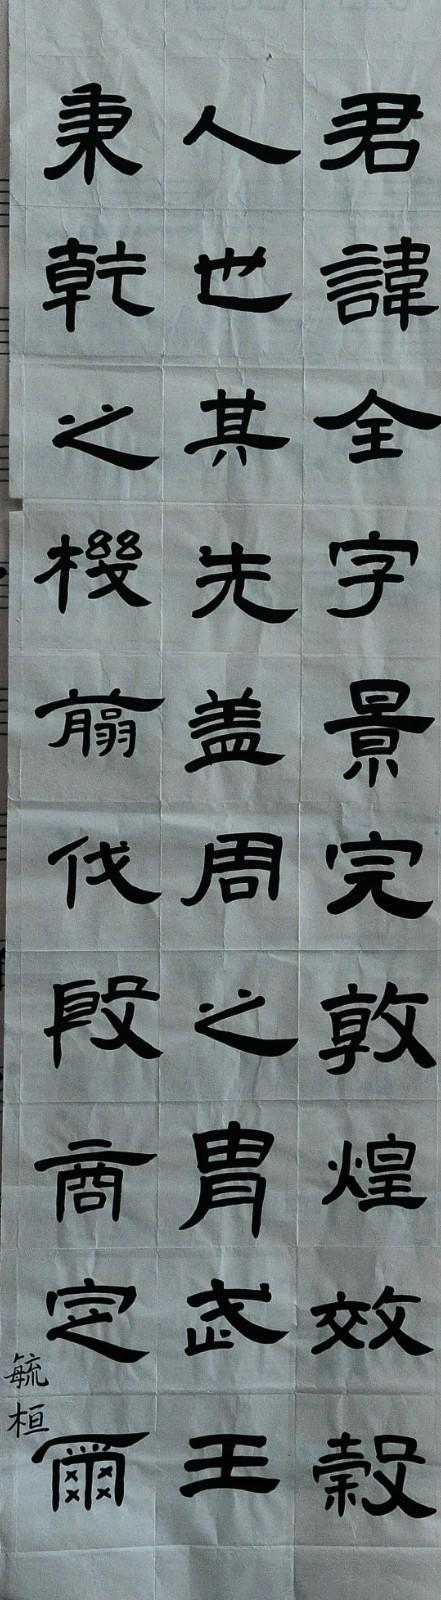 君諱全字景完敦煌效穀
人也其先盖周之胄武王
秉乾之機翦伐殷商定爾
毓桓